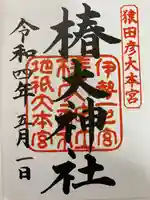 猿田彦大本宮
伊勢一之宮
椿大神社
地祇大本宮
令和四年五月一日